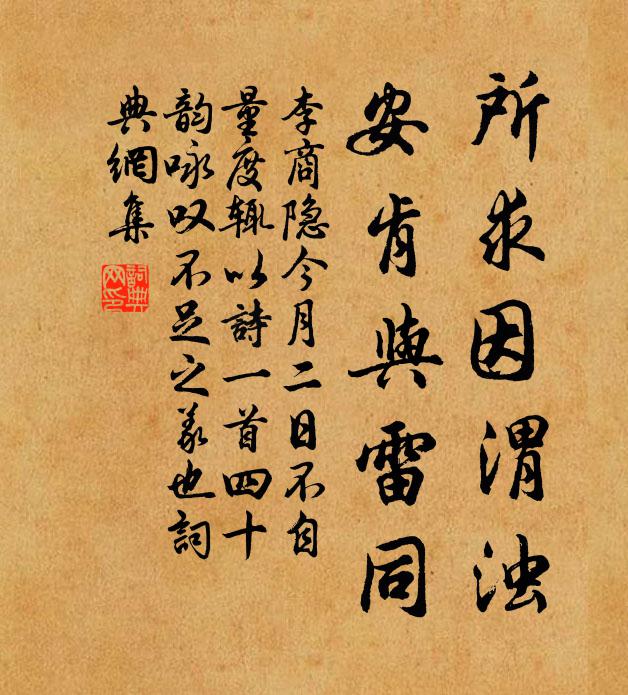 所求因渭浊
安肯與雷同
李商隐今月二日不自
量度辄以詩一首四十
韵咏叹不足之義也詞
典網集
詞典
网印